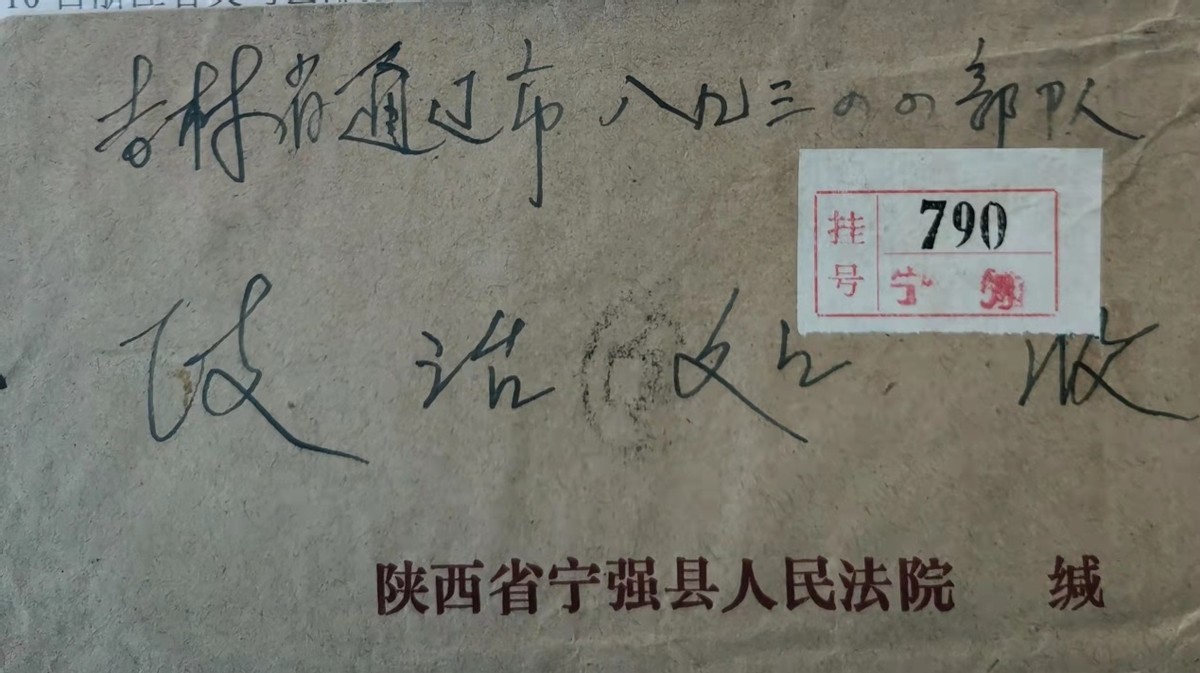 吉林省通辽市八九三四四部队
挂号
790
宁强
政治处 收
陕西省宁强县人民法院 缄